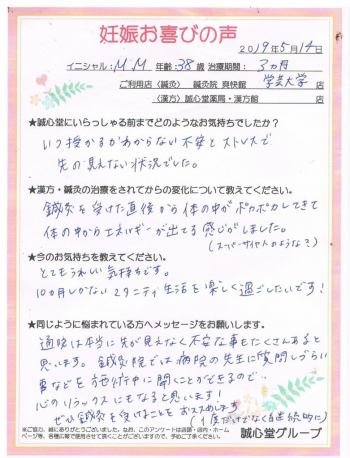 妊娠お喜びの声
2019年5月14日
イニシャル：M M 年齢：38歳 治療期間：3ヵ月
ご利用店〈鍼灸〉 鍼灸院 爽快館 学芸大学 店
〈漢方〉誠心堂薬局・漢方館 店
★誠心堂にいらっしゃる前までどのようなお気持ちでしたか？
いつ授かるかわからない不安とストレスで
先の見えない状況でした。
★漢方・鍼灸の治療をされてからの変化について教えてください。
鍼灸を受けた直後から体の中がポカポカしてきて
体の中からエネルギーが出てる感じがしました。
（スーパーサイヤ人のような？）
★今のお気持ちを教えてください。
とてもうれしい気持ちです。
10ヵ月しかないマタニティ生活を楽しく過ごしたいです！
★同じように悩まれている方へメッセージをお願いします。
通院は本当に先が見えなく不安な事もたくさんあると
思います。鍼灸院では病院の先生に質問しづらい
事などを施術中に聞くことができるので、
心のリラックスにもなると思います！
ぜひ鍼灸を受けることをおススメします！
（1度だけでなく継続的に）
※ご協力、誠にありがとうございました。なお、このアンケートは店頭・店内・ホーム
ページ等、各種広報で使用させて頂くことがございますので、予めご了承ください。
誠心堂グループ